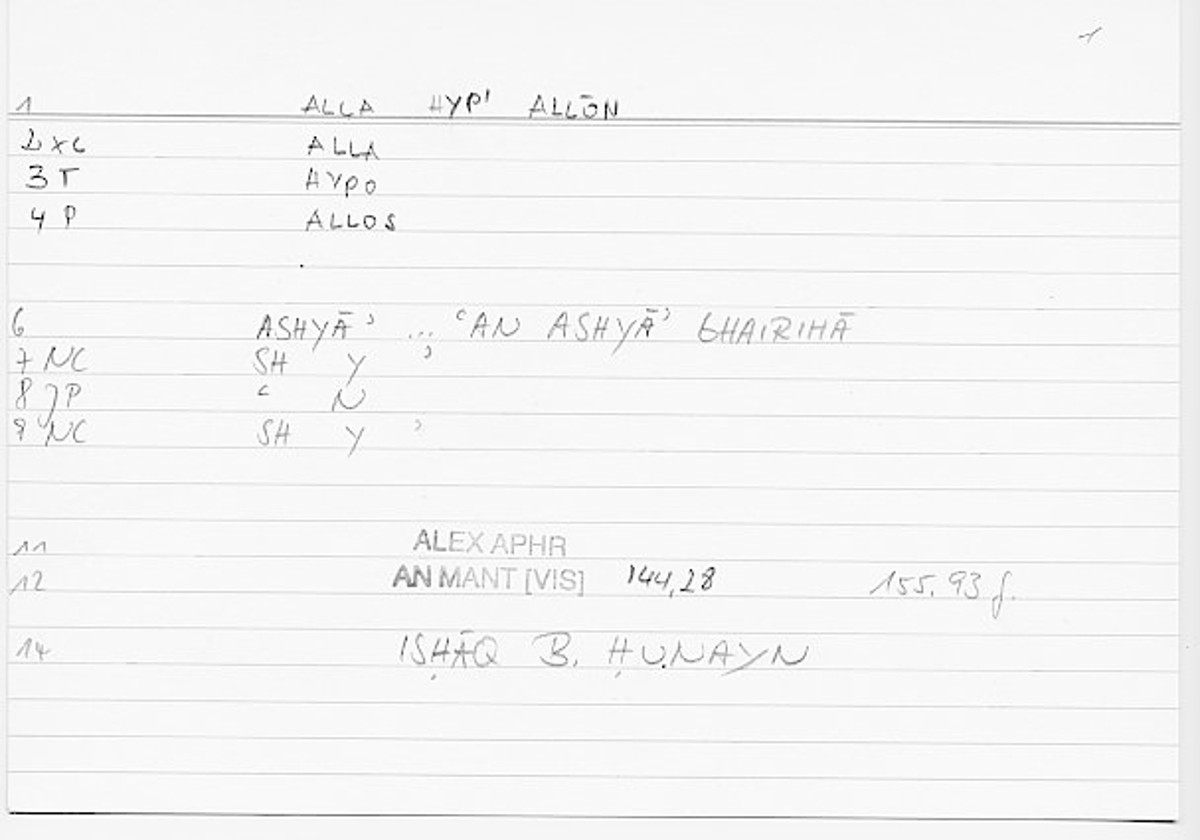 1
1 ALLA HYP' ALLŌN
2 XC ALLA
3 T HYPO
4 P ALLOS
6 ASHYĀʾ ... ʿAN ASHYĀʾ GHAIRIHĀ
7 NC SH Y ʾ
8 JP ʿ N
9 NC SH Y ʾ
11 ALEX APHR
12 AN MANT [VIS] 144,28 155.93 f.
14 ISḤĀQ B. ḤUNAYN